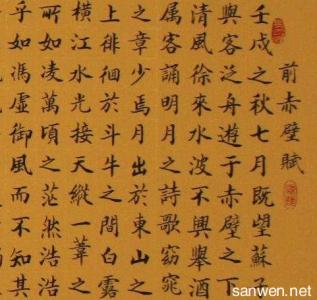 前赤壁賦
壬戌之秋七月既望蘇子
與客泛舟遊于赤壁之下
清風徐來水波不興舉酒
属客誦明月之詩歌窈窕
之章少焉月出於東山之
上徘徊於斗牛之間白露
横江水光接天縱一葦之
所如凌萬頃之茫然浩浩
乎如馮虚御風而不知其
sanwen.net